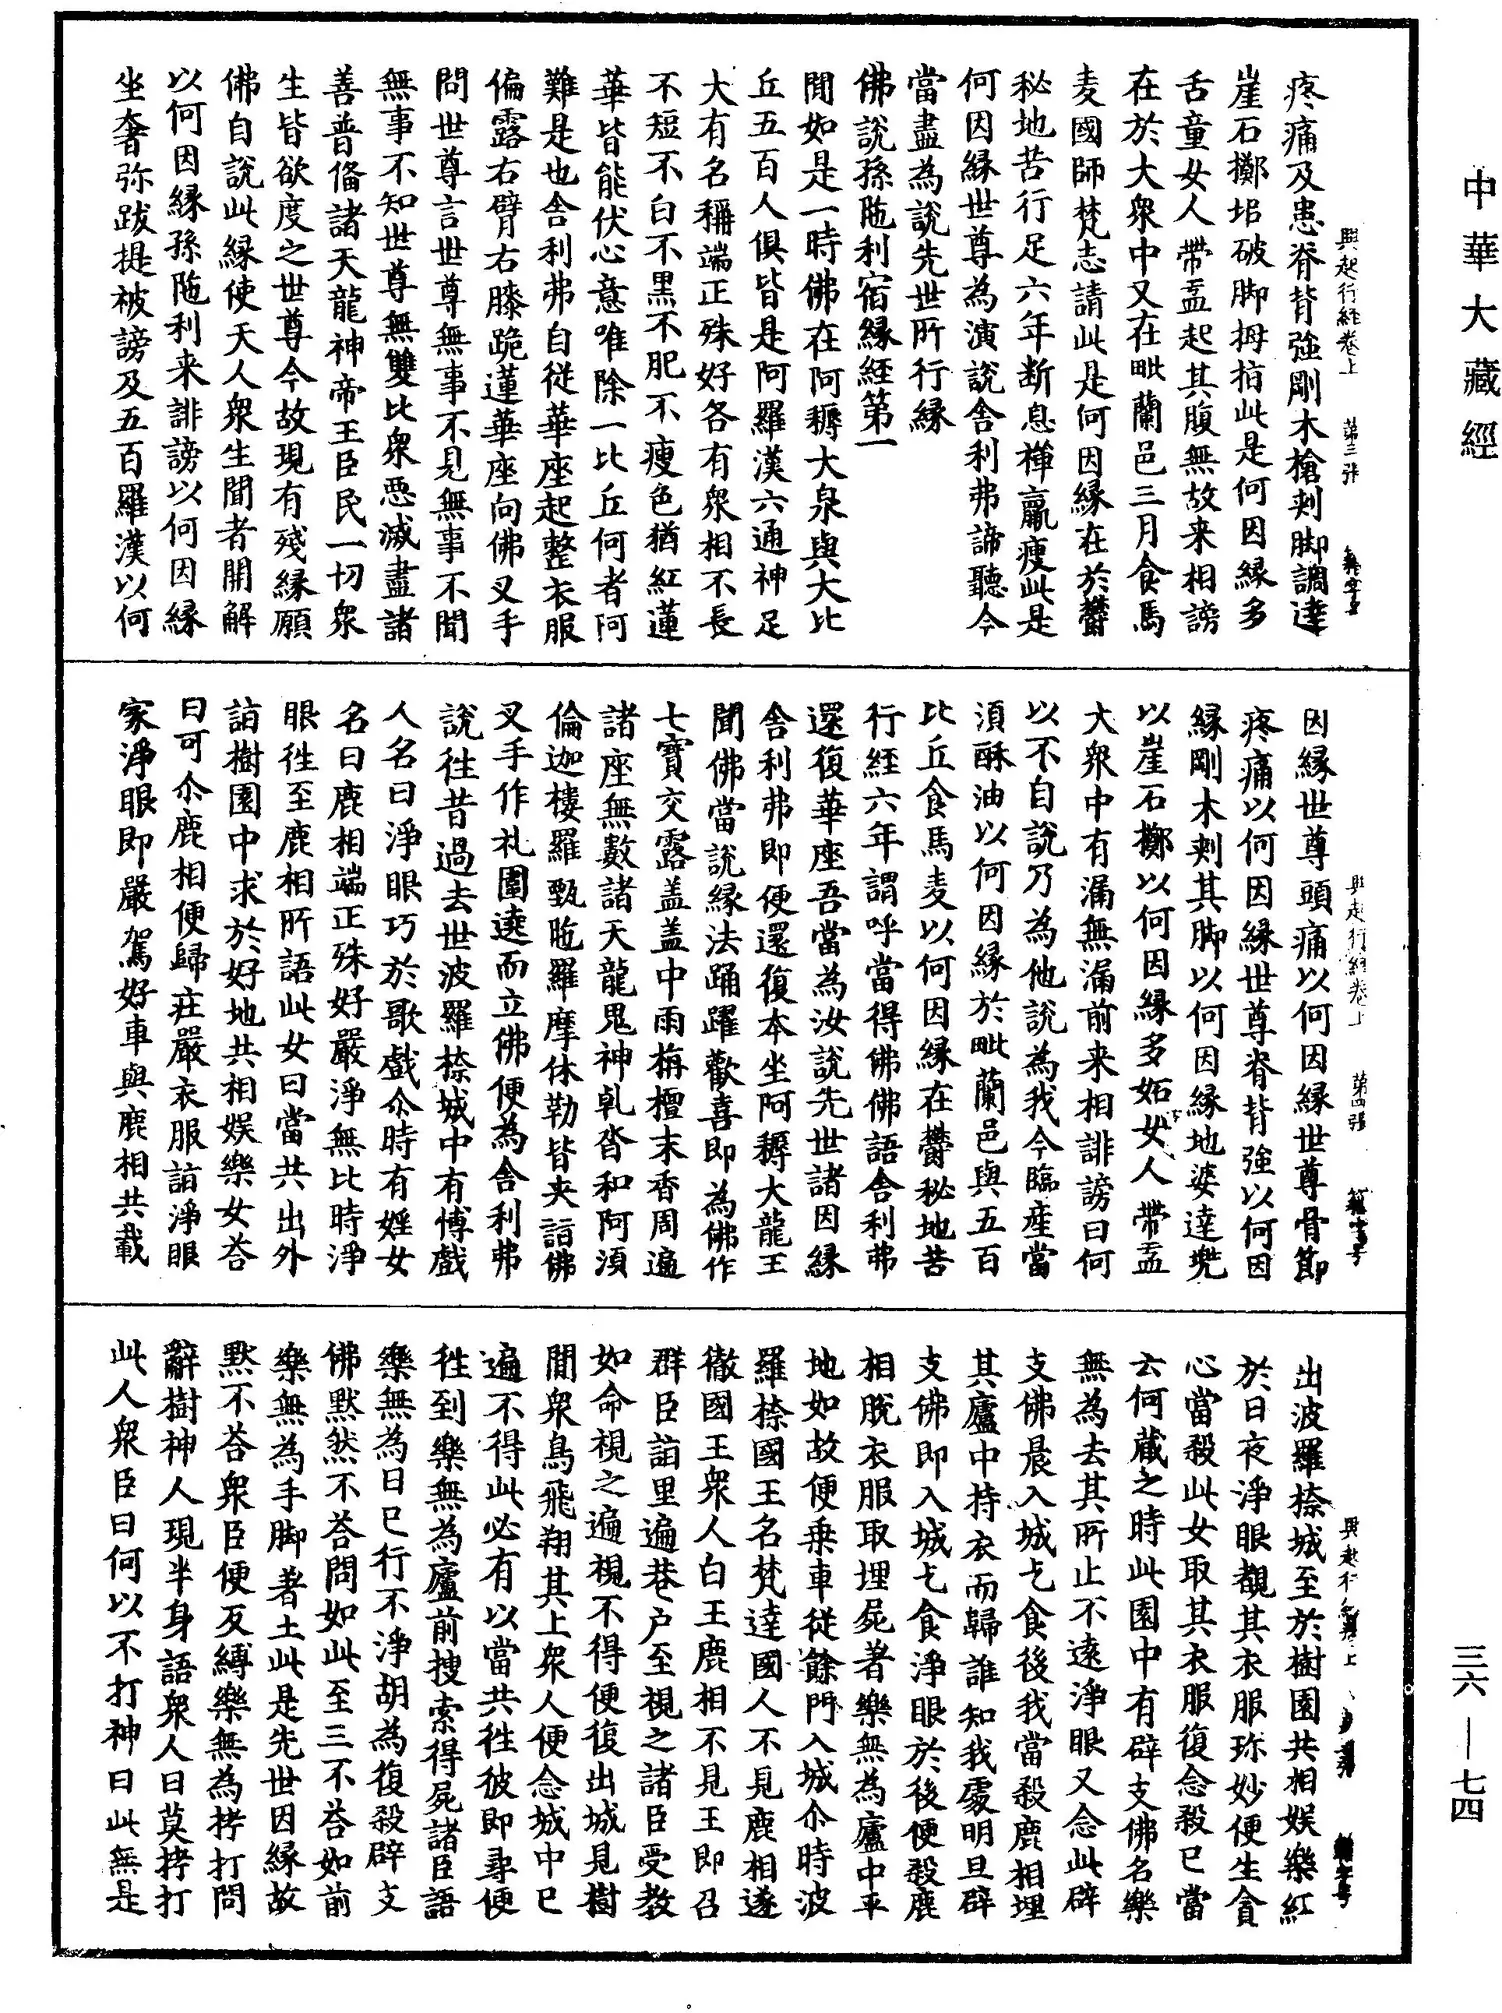 中華大藏經
興起行經卷上　第三張
疼痛及患脊背強剛木槍刾脚調達
崖石擲培破脚拇拍此是何因緣多
舌童女人帶盂起其腹無故来相謗
在於大衆中又在毗蘭邑三月食馬
麦國師梵志請此是何因緣在於欝
秘地苦行足六年断息禪羸瘦此是
何因緣世尊為演說舍利弗諦聽今
當盡為說先世所行緣
佛說孫陁利宿緣經第一
聞如是一時佛在阿耨大泉與大比
丘五百人俱皆是阿羅漢六通神足
大有名稱端正殊好各有衆相不長
不短不白不黑不肥不瘦色猶紅蓮
華皆能伏心意唯除一比丘何者阿
難是也舍利弗自從華座起整衣服
偏露右臂右膝跪蓮華座向佛叉手
問世尊言世尊無事不見無事不聞
無事不知世尊無雙比衆惡滅盡諸
善普俻諸天龍神帝王臣民一切衆
生皆欲度之世尊今故現有殘緣願
佛自說此緣使天人衆生聞者開解
以何因緣孫陁利来誹謗以何因緣
坐奢弥跋提被謗及五百羅漢以何
興起行經卷上　第四張
因緣世尊頭痛以何因緣世尊骨節
疼痛以何因緣世尊脊背強以何因
緣剛木刾其脚以何因緣地婆達兠
以崖石擲以何因緣多妬女人帶盂
大衆中有漏無漏前来相誹謗曰何
以不自說乃為他說為我今臨産當
須酥油以何因緣於毗蘭邑與五百
比丘食馬麦以何因緣在欝秘地苦
行経六年謂呼當得佛佛語舍利弗
還復華座吾當為汝說先世諸因緣
舍利弗即便還復本坐阿耨大龍王
聞佛當說緣法踊躍歡喜即為佛作
七寶交露盖盖中雨栴檀末香周遍
諸座無數諸天龍鬼神乹沓和阿湏
倫迦樓羅甄陁羅摩休勒皆来詣佛
叉手作礼圍遶而立佛便為舍利弗
說徃昔過去世波羅㮈城中有博戲
人名曰淨眼巧於歌戲尒時有婬女
名曰鹿相端正殊好嚴淨無比時淨
眼徃至鹿相所語此女曰當共出外
詣樹園中求於好地共相娛樂女荅
曰可尒鹿相便歸莊嚴衣服詣淨眼
家淨眼即嚴駕好車與鹿相共載
出波羅㮈城至於樹園共相娛樂經
於日夜淨眼覩其衣服珎妙便生貪
心當殺此女取其衣服復念殺已當
云何藏之時此園中有辟支佛名樂
無為去其所止不遠淨眼又念此辟
支佛晨入城乞食後我當殺鹿相埋
其廬中持衣而歸誰知我處明旦辟
支佛即入城乞食淨眼於後便殺鹿
相脫衣服取埋屍著樂無為廬中平
地如故便乗車從餘門入城尒時波
羅㮈國王名梵達國人不見鹿相遂
徹國王衆人白王鹿相不見王即召
群臣詣里遍巷户至視之諸臣受教
如命視之遍視不得便復出城見樹
間衆鳥飛翔其上衆人便念城中已
遍不得此必有以當共徃彼即尋便
徃到樂無為廬前搜索得屍諸臣語
樂無為曰已行不淨胡為復殺辟支
佛默然不荅問如此至三不荅如前
樂無為手脚著土此是先世因緣故
默不荅衆臣便反縛樂無為拷打問
辭樹神人現半身語衆人曰莫拷打
此人衆臣曰何以不打神曰此無是
三六—七四